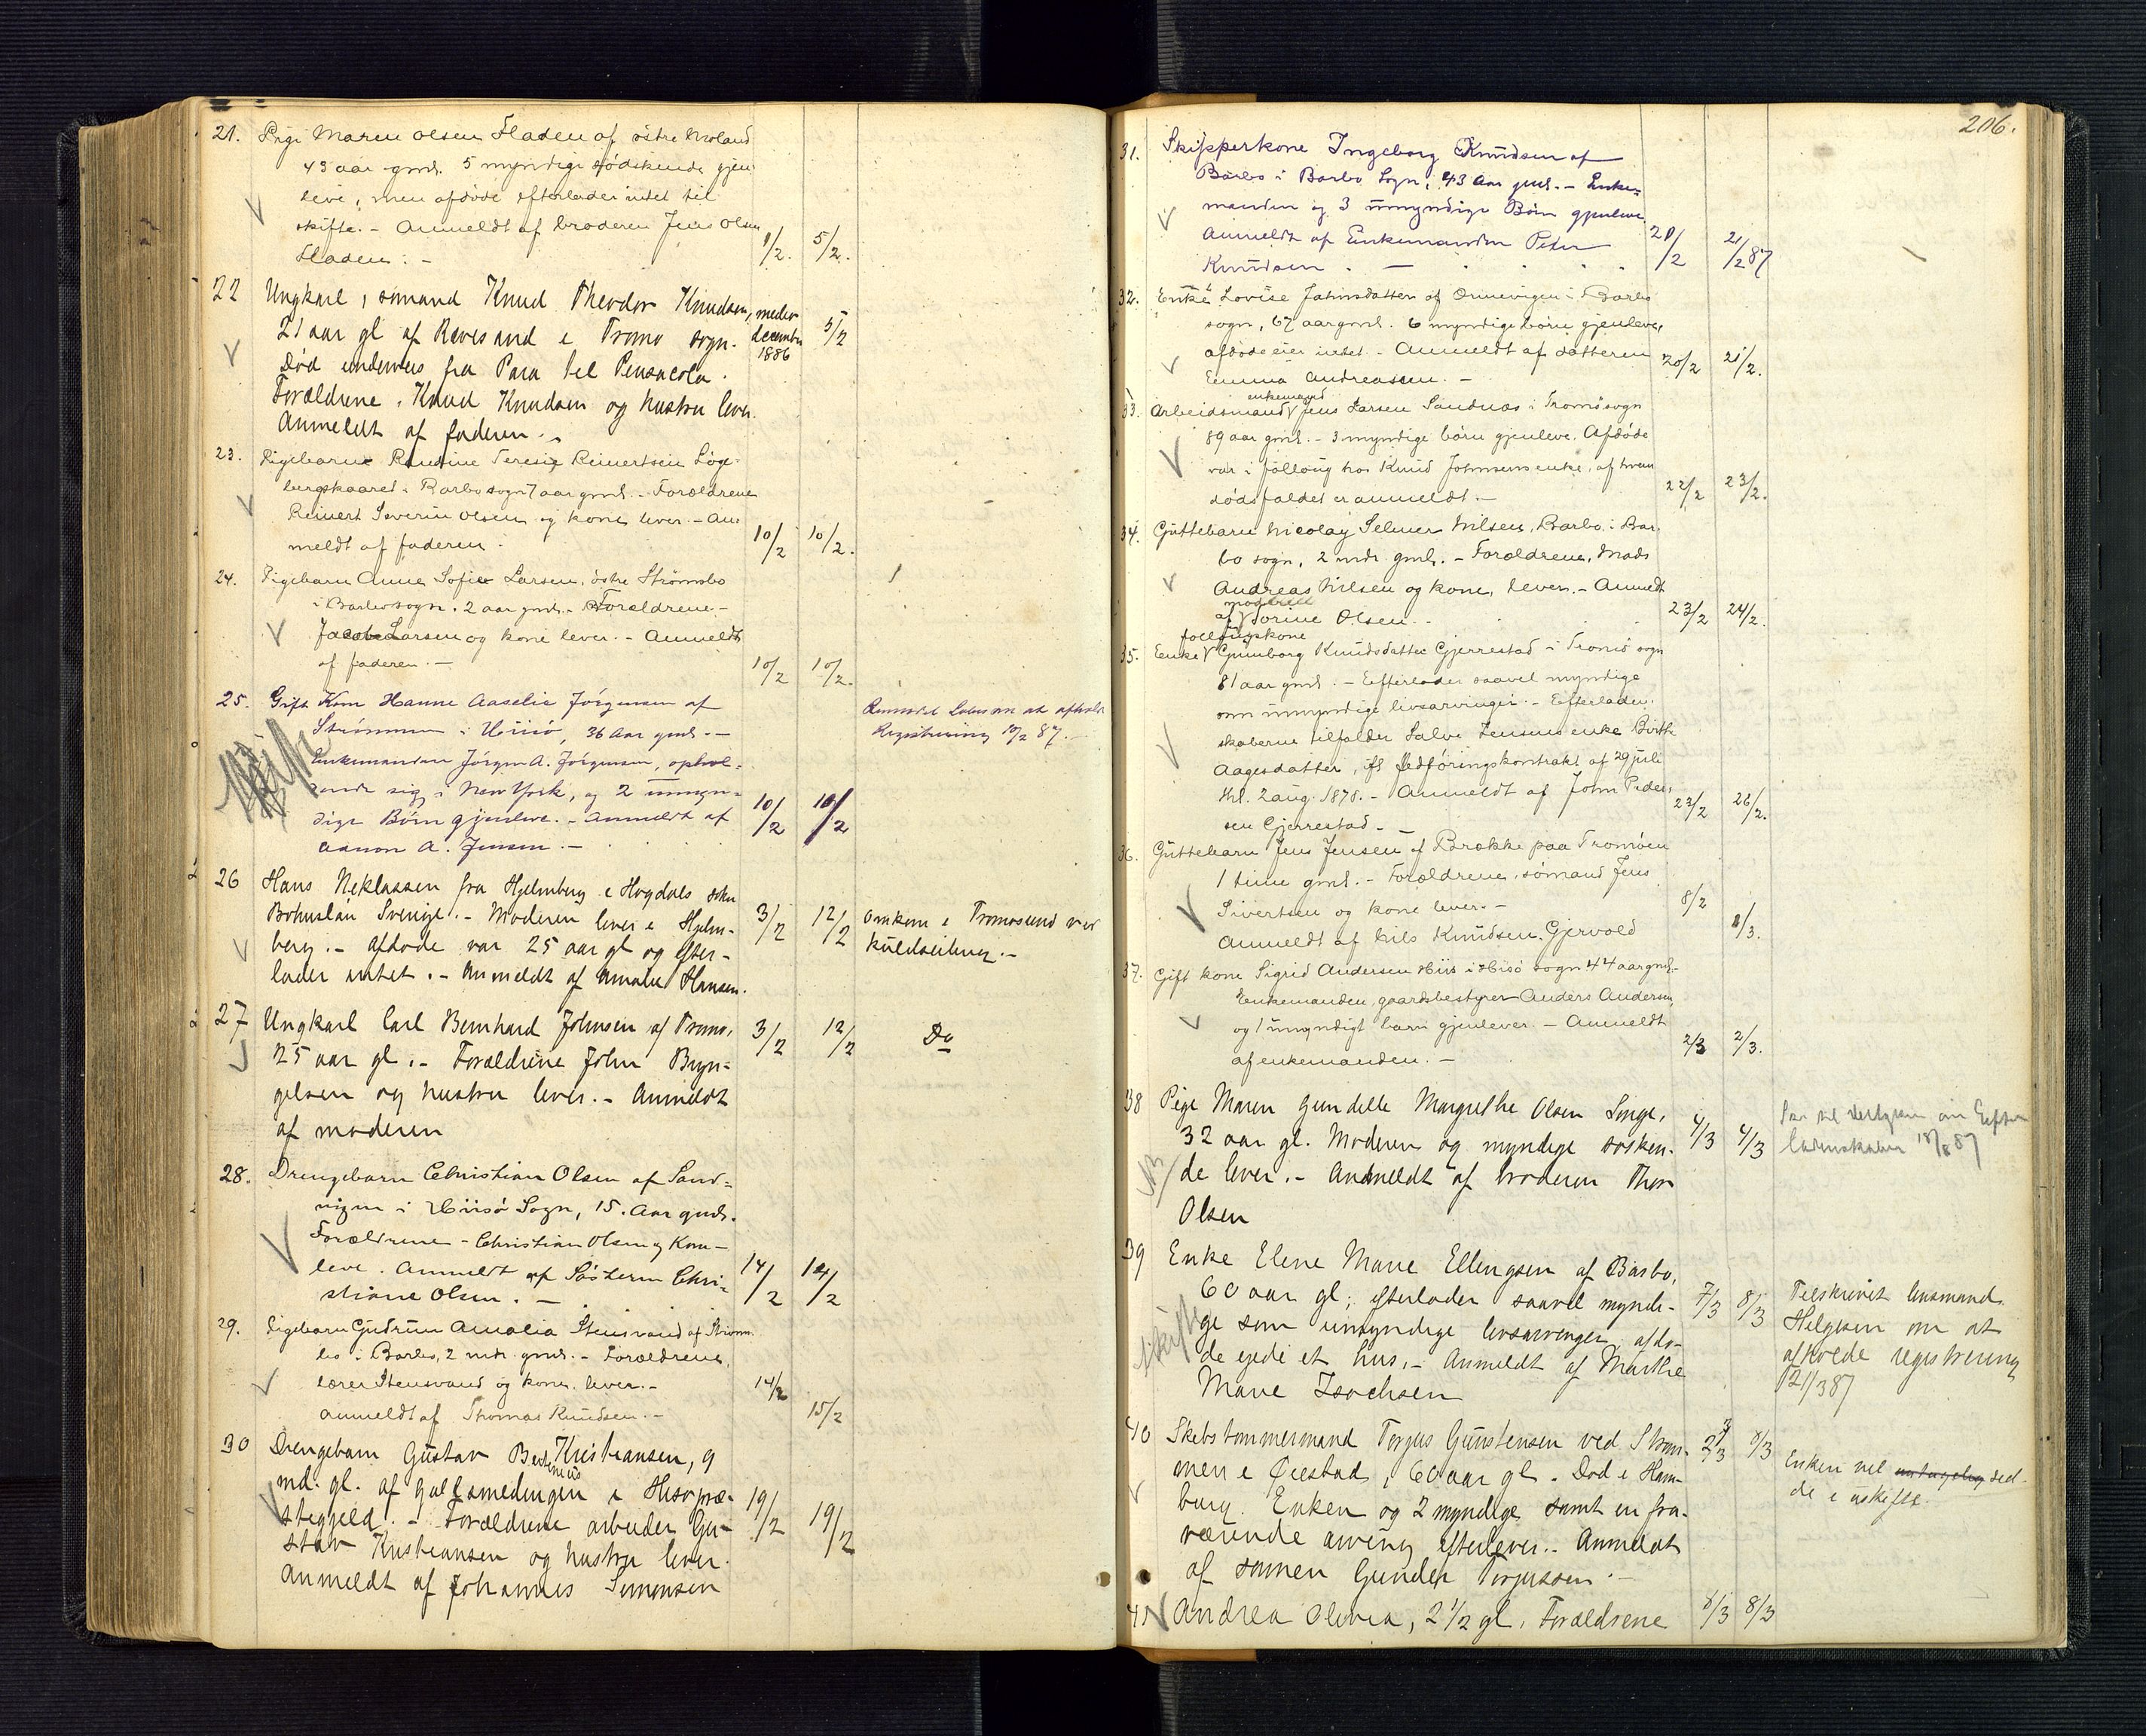 21. Pige Maren Olsen Fladen af østre Moland
43 aar gml. 5 myndige södskende gjen
leve, men afdöde efterlader intet til
skifte. - Anmeldt af broderen Jens Olsen
Fladen. - 1/2. 5/2.
22 Ungkarl, sømand Knud Theodor Knudsen, medio
21 aar gl af Revesand i Tromø sogn. december 5/2
Død underveis fra Para til Pensacola. 1886
Forældrene, Knud Knudsen og hustru lever.
Anmeldt af faderen.
23. Pigebarn Teresie Reinertsen Löge-
bergskaaret i Barbo sogn 7 aar gml. - Forældrene
Reinert Severin Olsen og kone lever. - An-
meldt af faderen. 10/2 10/2.
24. Pigebarn Anne Sofie Larsen, östre Strömsbo
i Barbo sogn. 2 aar gml. - Forældrene -
Jacob Larsen og kone lever. - Anmeldt
af faderen. - 10/2 10/2.
25. Gift Kone Hanne Aaselie Jörgensen af
Strömmen i Hiisö, 36 Aar gml. -
Enkemanden Jörgen A. Jörgensen, ophol-
dende sig i New York, og 2 umyn-
dige Börn gjenleve. - Anmeldt af 10/2 10/2
Aanon A. Jensen. -
Registrering 10/2 87.
26 Hans Neklassen fra Hjelmberg i Hogdals sokn
Bohuslän Sverige. - Moderen lever i Hjelm- 3/2 12/2 Omkom i Tromøsund ved
berg. - Afdøde var 25 aar gl og efter- kuldseiling. -
lader intet. - Anmeldt af Amalie Hansen.
27 Ungkarl Carl Bernhard Johnsen af Tromø, 3/2 12/2 Do
25 aar gl. - Forældrene John Bryn-
gelsen og hustru lever. - Anmeldt
af moderen
28. Drengebarn Christian Olsen af Sand-
vigen i Hiisö Sogn, 15. Aar gml.
Forældrene - Christian Olsen og Kone -
leve. Anmeldt af Sösteren Chri- 14/2 14/2
stiane Olsen. -
29. Pigebarn Gudrun Amalia Stensvand af Strøms-
bo i Barbo, 2 mdr. gml. - Forældrene,
lærer Stensvand og kone, lever. - 14/2
Anmeldt af Thomas Knudsen. - 15/2
30 Drengebarn Gustav Bertinius Kristiansen, 9
md. gl. af Gullsmedengen i Hisø præ-
stegjeld. - Forældrene arbeider Gu- 19/2 19/2
stav Kristiansen og hustru lever.
Anmeldt af Johannes Simonsen
206.
31. Skipperkone Ingeborg Knudsen af
Barbo i Barbo Sogn, 43 Aar gml. - Enke-
manden og 3 umyndige Börn gjenleve.
Anmeldt af Enkemanden Peder 20/2 21/2 87
Knudsen. -
32. Enke Lovise Jahnsdatter af Onnevigen i Barbo
sogn, 67 aar gml. 6 myndige börn gjenleve,
afdöde eier intet. - Anmeldt af datteren 20/2 21/2.
Emma Andreassen. -
33. Arbeidsmand enkemand Jens Larsen Sandnæs i Tromö sogn
89 aar gml. - 3 myndige börn gjenleve. Afdöde
var i föllaug hos Knud Johnsens enke, af hvem
dödsfaldet er anmeldt. - 22/2 23/2.
34. Guttebarn Nicolay Selmer Nilsen, Barbo i Bar-
bo sogn, 2 mdr. gml. - Forældrene, Mads
Andreas Nilsen og kone, lever. - Anmeldt
af Torine Olsen. - 23/2 24/2.
35. Enke föllougskone Gunborg Knudsdatter Gjerrestad i Tromö sogn
81 aar gml. - Efterlader saavel myndige
som umyndige livsarvinger. - Efterladen-
skaberne tilfalder Salve Jensens enke Birthe
Aagesdatter, ifl födföringskontrakt af 29 juli
thl. 2 aug. 1878. - Anmeldt af John Peder-
sen Gjerrestad. - 23/2 26/2.
36. Guttebarn Jens Jensen af Brække paa Tromöen
1 time gml. - Forældrene, sömand Jens
Sivertsen og kone lever. - 8/2
Anmeldt af Nils Knudsen, Gjervold 1/3.
37. Gift kone Sigrid Andersen Hiis i Hisö sogn 44 aar gml. -
Enkemanden, gaardsbestyrer Anders Andersen
og 1 umyndigt barn gjenlever. - Anmeldt
af enkemanden. - 2/3 2/3.
38 Pige Maren Gundelle Margrethe Olsen Longe,
32 aar gl. Moderen og myndige søsken- 4/3 4/3
de lever. - Anmeldt af broderen Thor
Olsen
39 Enke Elene Marie Ellengsen af Barbo,
60 aar gl; efterlader saavel myndi- 7/3 8/3 Tilskrevet lensmand
ge som umyndige livsarvinger, afdø- Helgesen om at
de eiede et hus. - Anmeldt af Marthe afholde registrering
Marie Isachsen 12/3 87
40 Skibstømmermand Torjus Gunstensen ved Strøm- 8/3
men i Øiestad, 60 aar gl. Død i Ham- Enken vil sid-
burg. Enken og 2 myndige samt en fra- de i uskifte.
værende arving efterlever. - Anmeldt
af sønnen Gunder Torjussen. -
41 Andrea Olivia, 2 1/2 gl, Forældrene 8/3 8/3